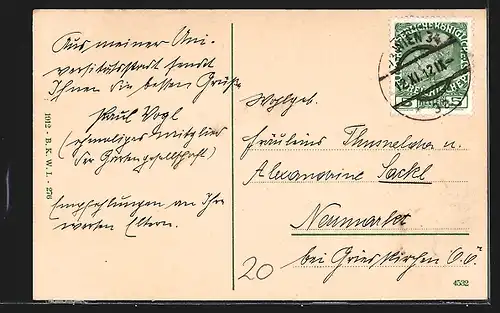 Aus meiner Uni-
versitätsstadt sendet
Ihnen die besten Grüße
Paul Vogl
(ehemaliges Mitglied
der Gartengesellschaft)
Empfehlungen an Ihre
werten Eltern.
1912 · B. K. W. I. · 276
WIEN 34
12.XI.12
5 5
Wohlgeb.
Fräuleins Thusnelda u.
Alexandrine Sackl
Neumarkt
bei Grieskirchen O.Ö.
20
4532